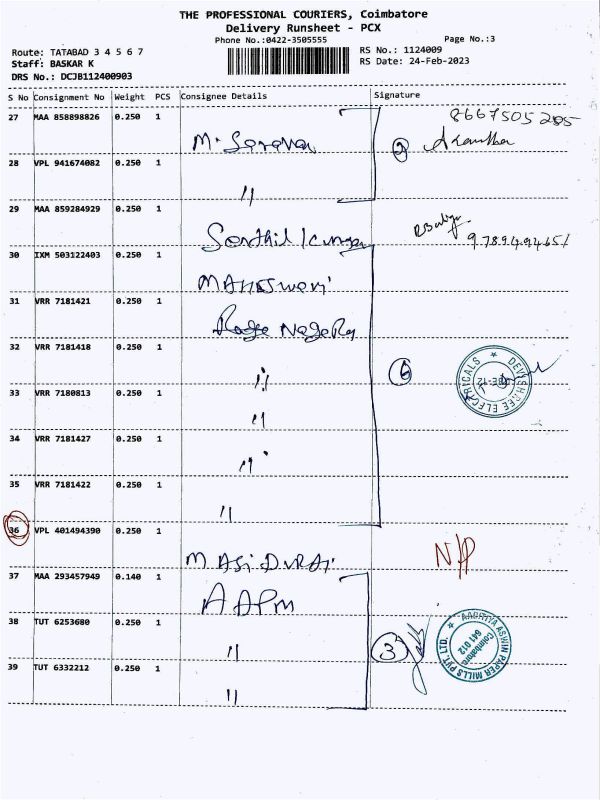 THE PROFESSIONAL COURIERS, Coimbatore
Delivery Runsheet - PCX
Phone No.:0422-3505555
Page No.:3
Route: TATABAD 3 4 5 6 7
RS No.: 1124009
Staff: BASKAR K
RS Date: 24-Feb-2023
DRS No.: DCJB112400903
S No Consignment No Weight PCS Consignee Details Signature
27 MAA 858898826 0.250 1
8667505285
M. Saravan
2
28 VPL 941674082 0.250 1
"
29 MAA 859284929 0.250 1
Senthil Kumar
9789494651
30 IXM 503122403 0.250 1
MAHESwari
31 VRR 7181421 0.250 1
NageRaj
32 VRR 7181418 0.250 1
"
6
DEVISHREE ELECTRICALS
CBE-12
33 VRR 7180813 0.250 1
"
34 VRR 7181427 0.250 1
"
35 VRR 7181422 0.250 1
"
36 VPL 401494390 0.250 1
N/P
MASiDURAi
37 MAA 293457949 0.140 1
AAPM
38 TUT 6253680 0.250 1
"
3
AADITYA ASWIN PAPER MILLS PVT. LTD.
Coimbatore
641 012
39 TUT 6332212 0.250 1
"